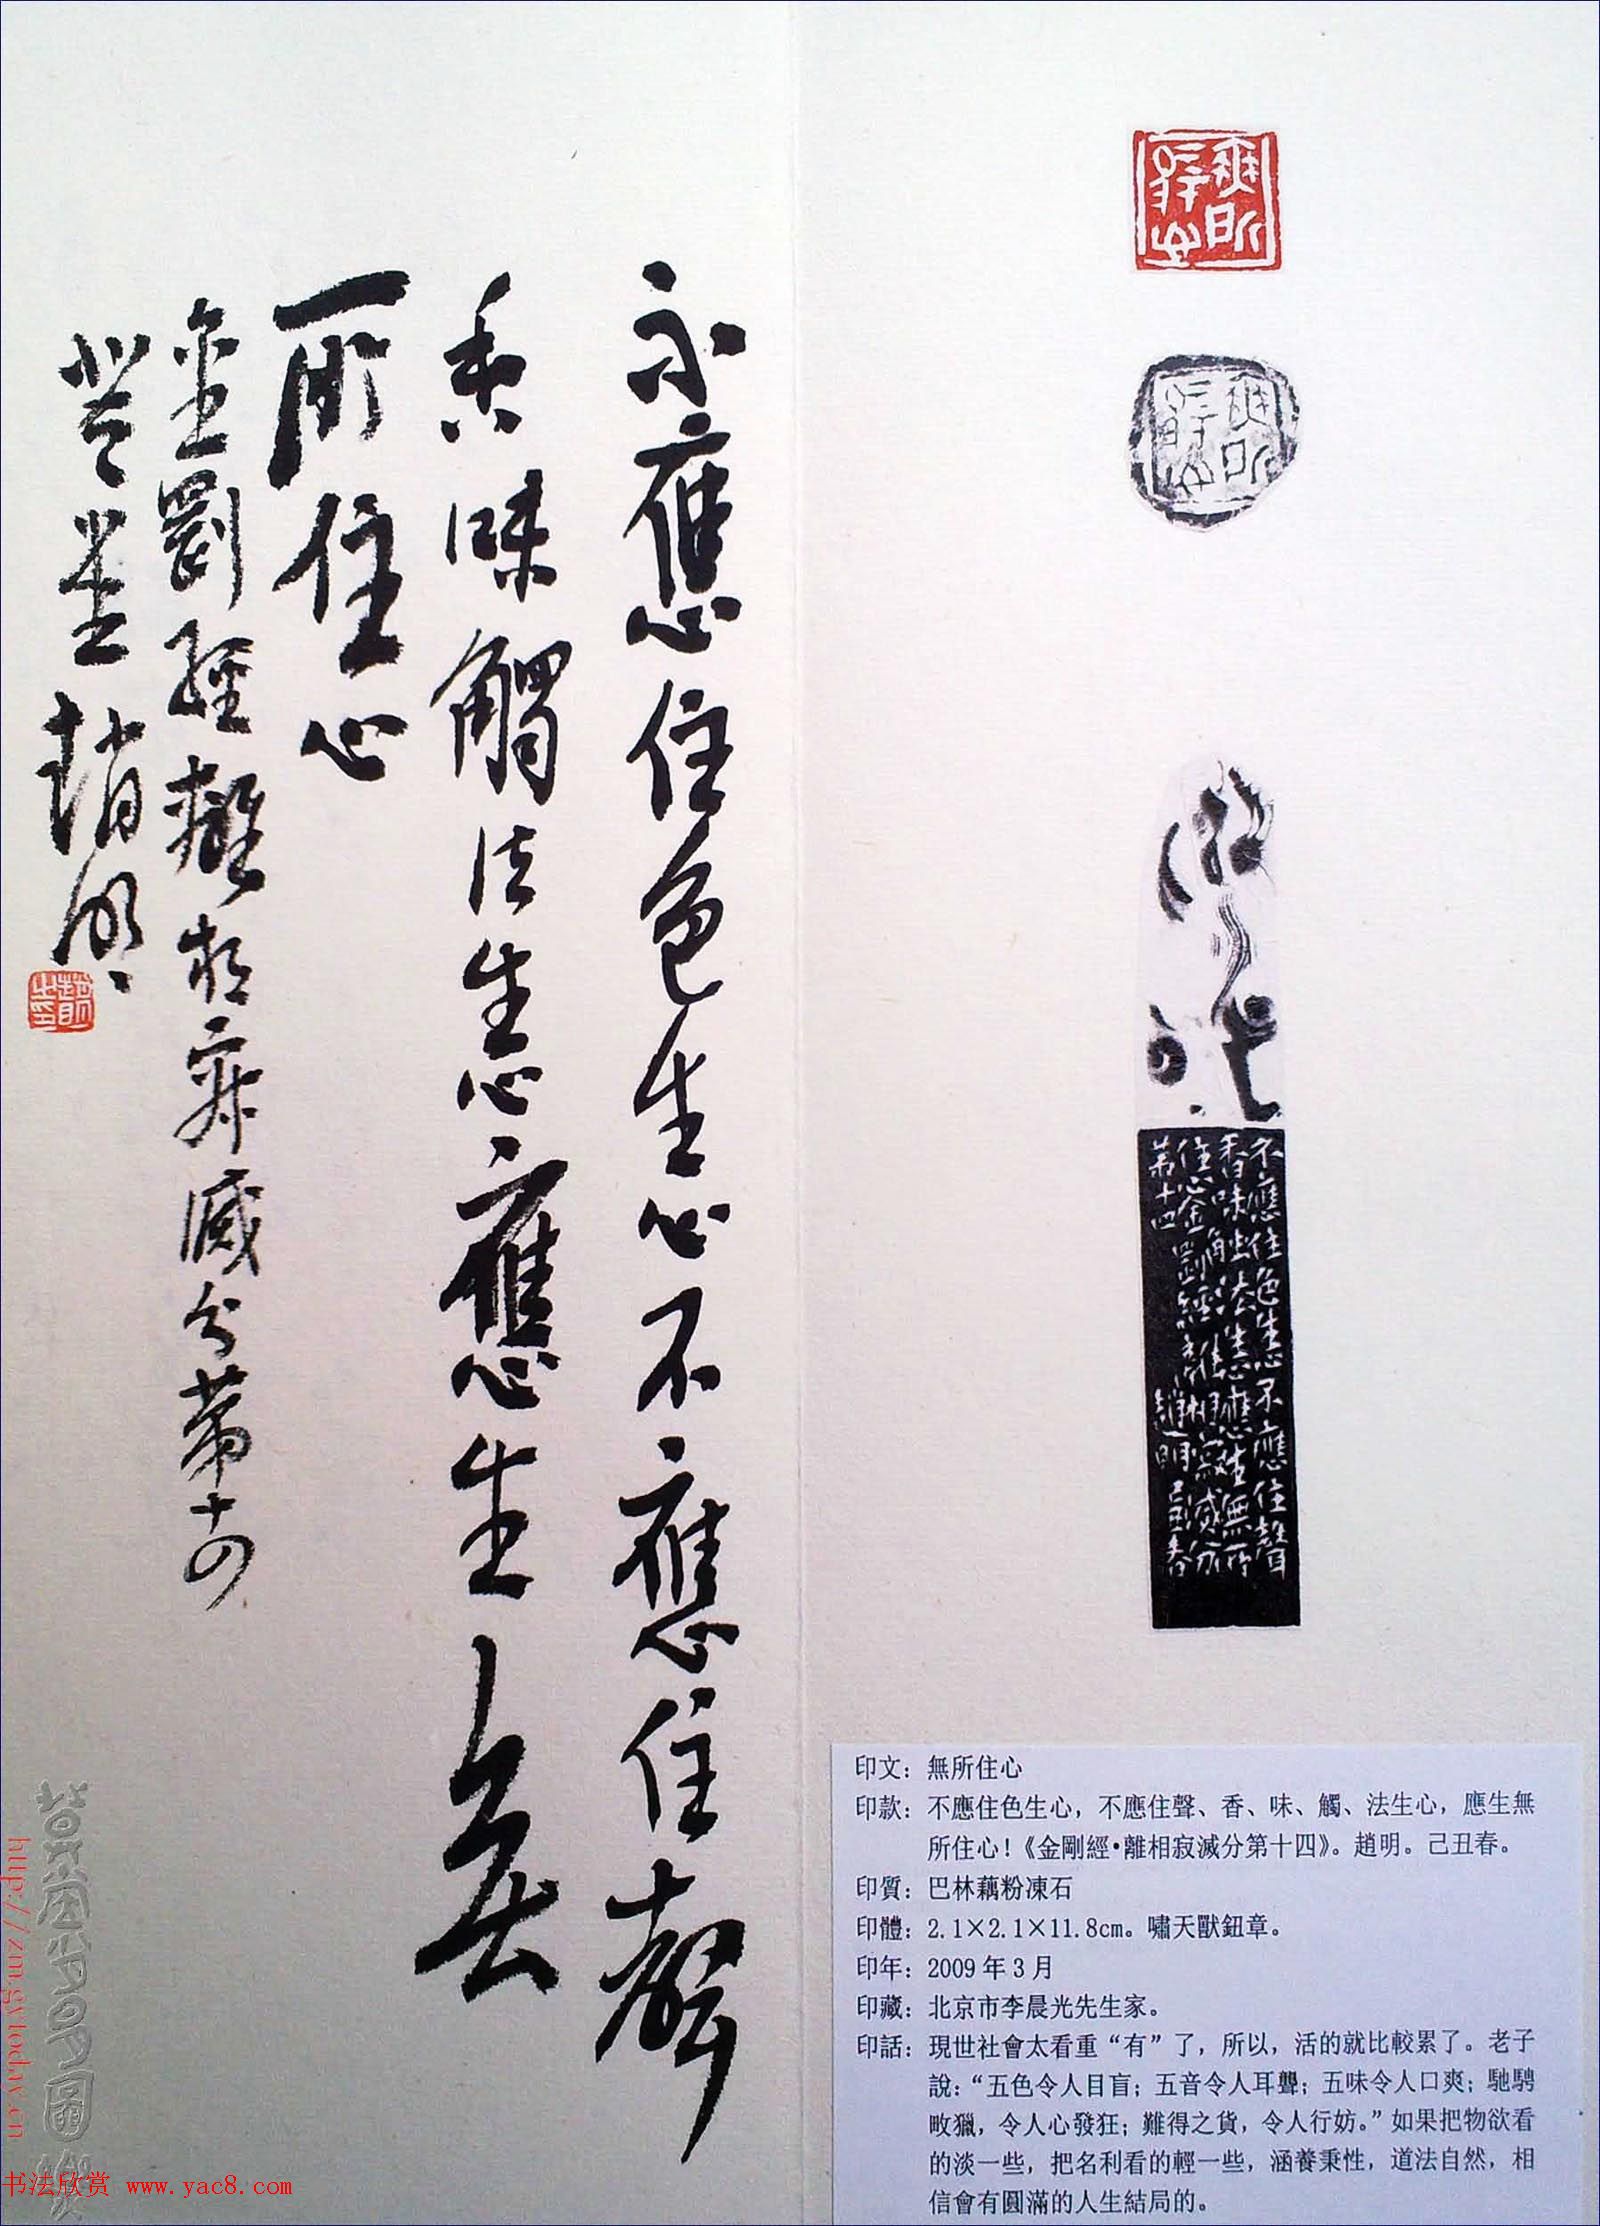 不應住色生心不應住聲
香味觸法生心應生無
所住心
金剛經離相寂滅分第十四
趙明
不應住色生心不應住聲
香味觸法生心應生無所
住心金剛經離相寂滅分
第十四 趙明己丑春
印文：無所住心
印款：不應住色生心，不應住聲、香、味、觸、法生心，應生無
所住心！《金剛經•離相寂滅分第十四》。趙明。己丑春。
印質：巴林藕粉凍石
印體：2.1×2.1×11.8cm。嘯天獸鈕章。
印年：2009年3月
印藏：北京市李晨光先生家。
印話：現世社會太看重“有”了，所以，活的就比較累了。老子
說：“五色令人目盲；五音令人耳聾；五味令人口爽；馳騁
畋獵，令人心發狂；難得之貨，令人行妨。”如果把物欲看
的淡一些，把名利看的輕一些，涵養秉性，道法自然，相
信會有圓滿的人生結局的。
http://zm.gytoday.cn
书法欣赏 www.yac8.com